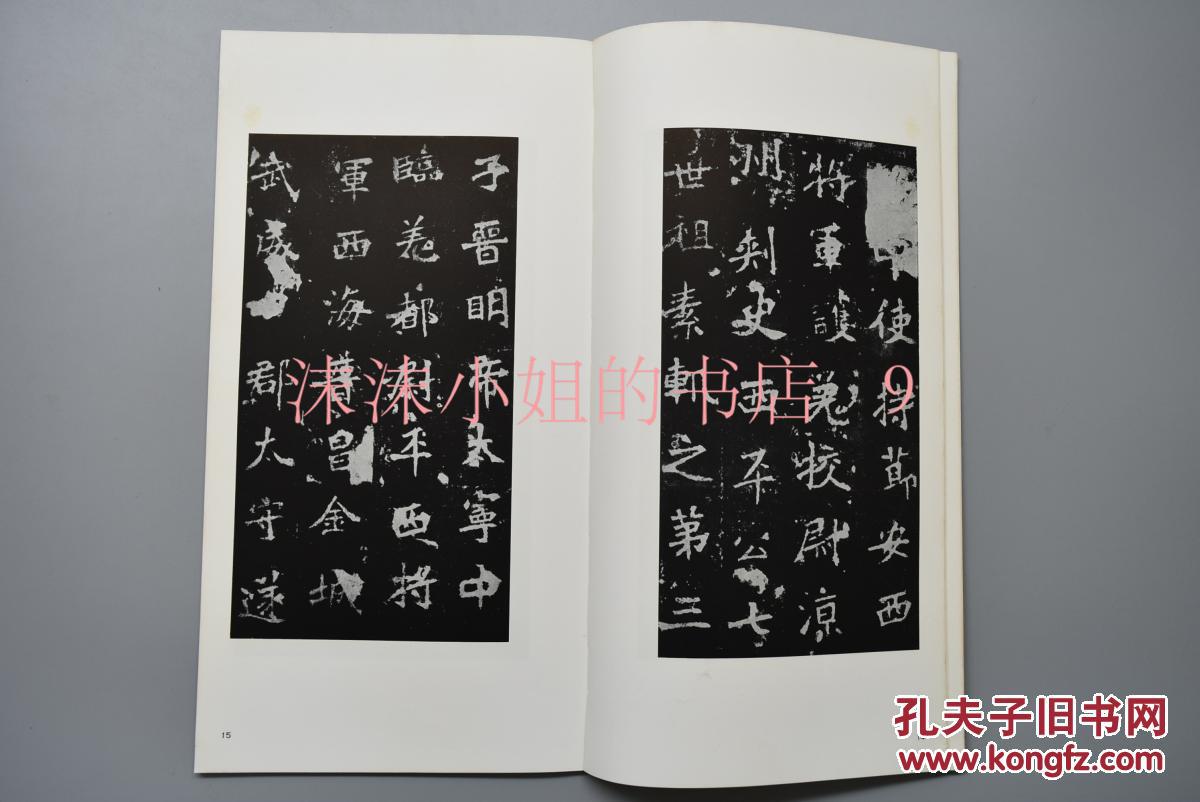 中使持節安西
將軍護羌校尉涼
州刾史西平公七
世祖素軌之第三
子晉明帝太寧中
臨羌都尉平西將
軍西海晉昌金城
武威郡太守遂
15
沫沫小姐的书店 9
孔夫子旧书网
www.kongfz.com